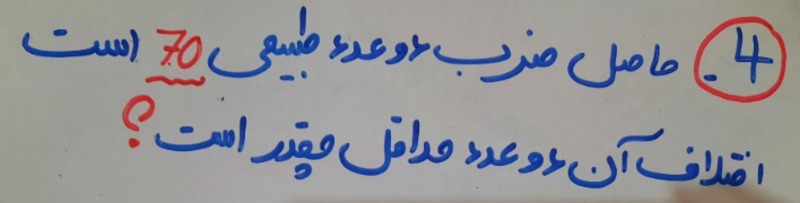 4. حاصل ضرب دو عدد طبیعی 70 است
اختلاف آن دو عدد حداقل چقدر است؟